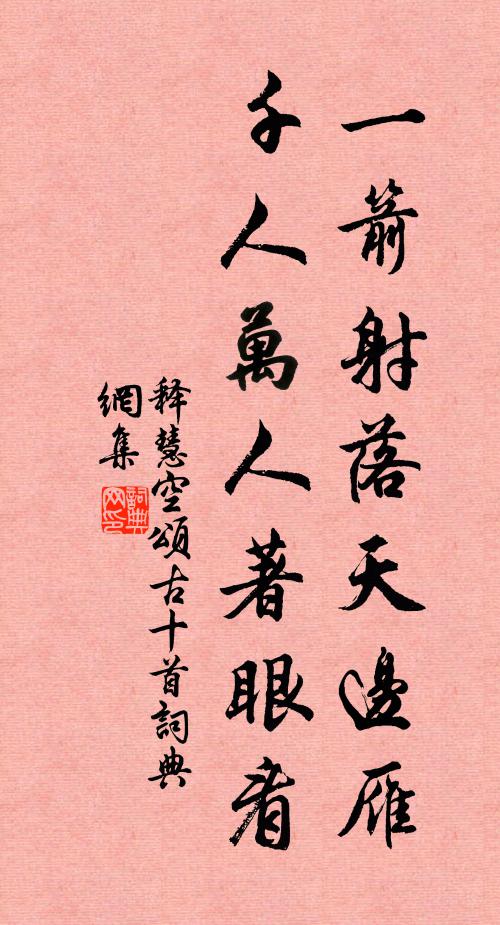 一箭射落天邊雁
千人萬人著眼看
释慧空頌古十首詞典
網集
詞典
网印